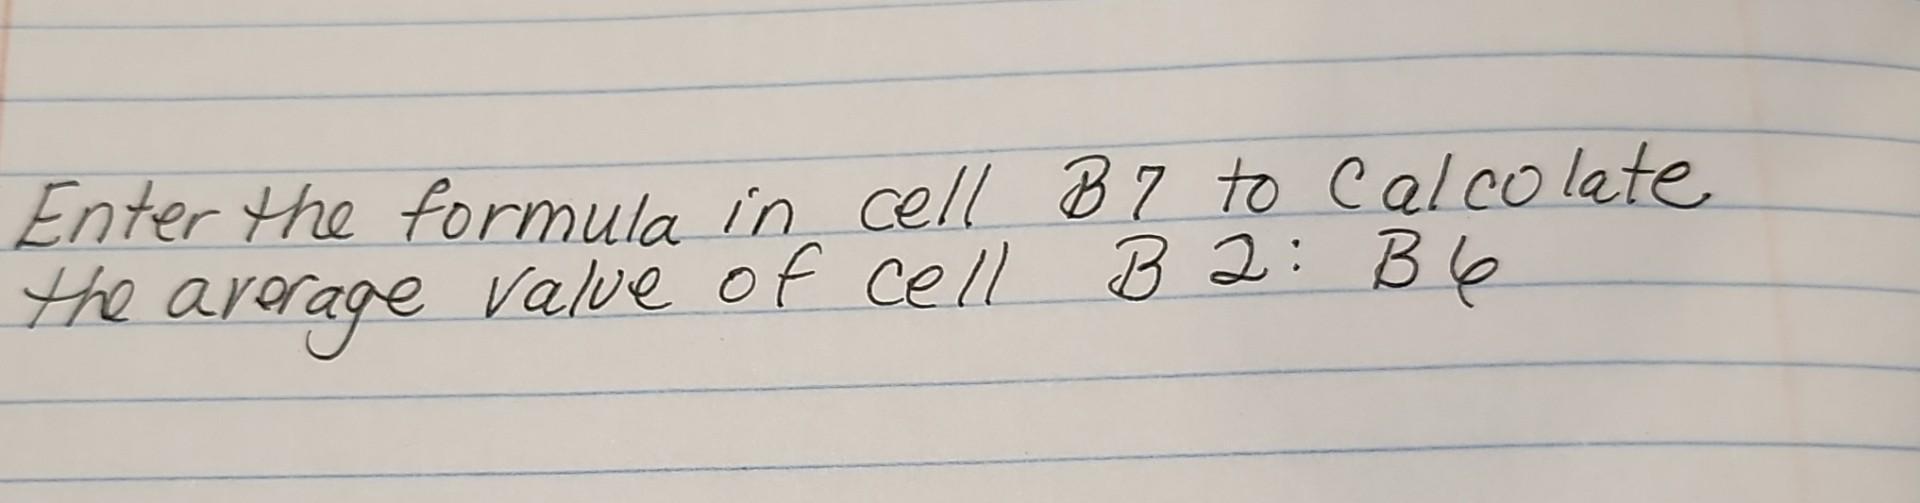 Enter the formula in cell B7 to Calcolate
the average value of cell B2: B6